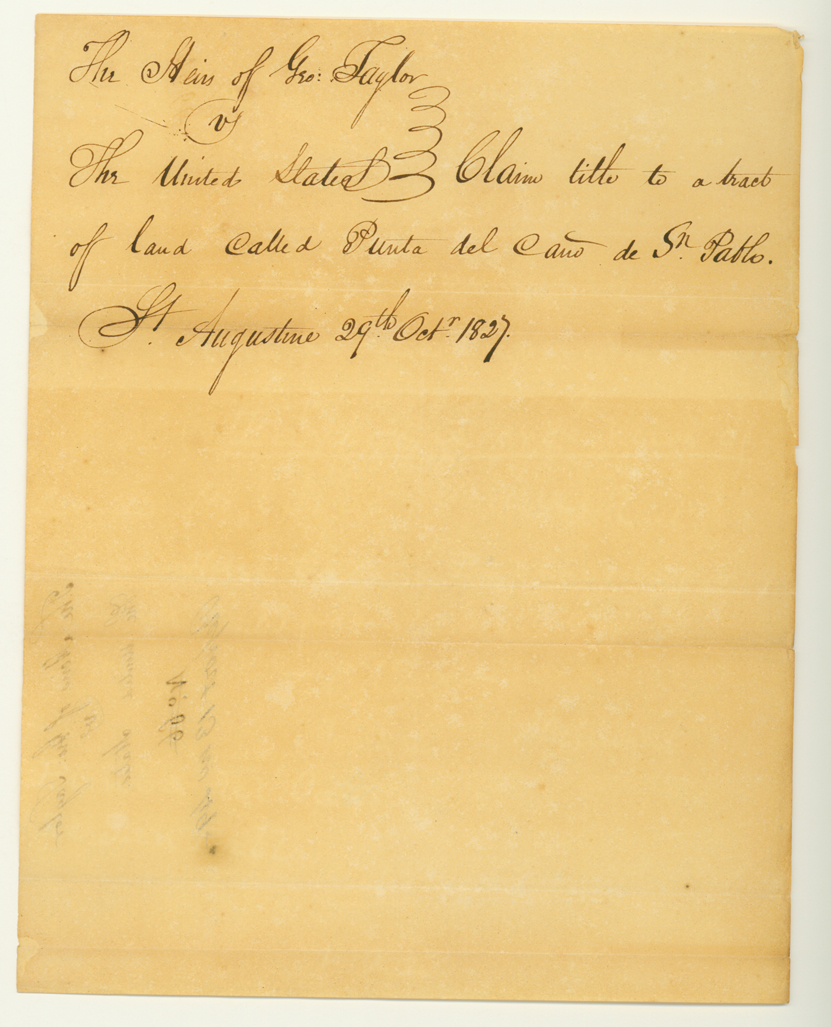 The Heirs of Geo: Taylor
vs
The United States Claim title to a tract
of land called Punta del Caño de Sn. Pablo.
St. Augustine 29th. Octr. 1827.